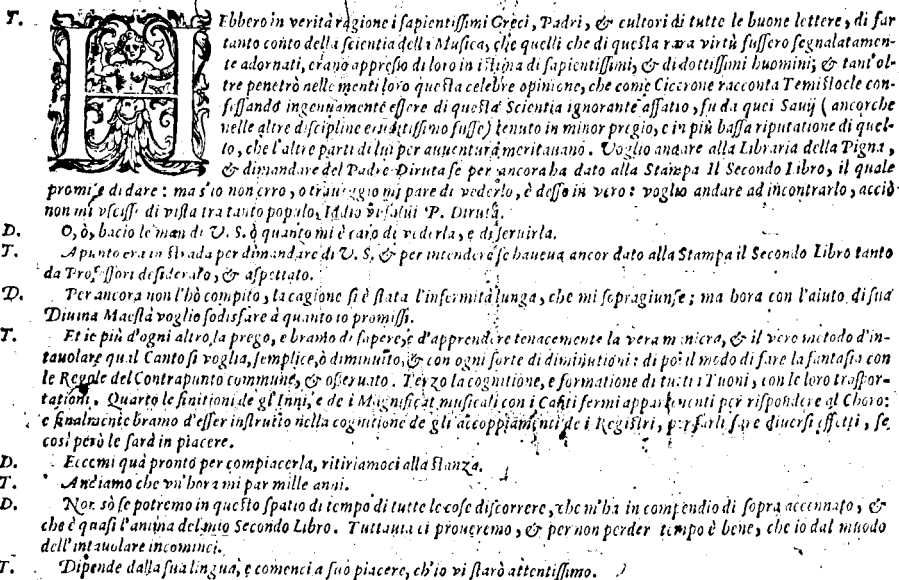 T. HEbbero in verità ragione i sapientissimi Greci, Padri, & cultori di tutte le buone lettere, di far
tanto conto della scientia della Musica, che quelli che di questa rara virtù fussero segnalatamen-
te adornati, erano appresso di loro in istima di sapientissimi, & di dottissimi huomini; & tant'ol-
tre penetrò nelle menti loro questa celebre opinione, che come Cicerone racconta Temistocle con-
fessando ingenuamente essere di questa Scientia ignorante affatto, fu da quei Sauij (ancorche
nelle altre discipline eruditissimo fusse) tenuto in minor pregio, e in più bassa riputatione di quel-
lo, che l'altre parti di lui per auuentura meritauano. Voglio andare alla Libraria della Pigna,
& dimandare del Padre Diruta se per ancora ha dato alla Stampa Il Secondo Libro, il quale
promise di dare: ma s'io non erro, o traueggio mi pare di vederlo, è desso in vero: voglio andare ad incontrarlo, acciò
non mi vscisse di vista tra tanto populo, Iddio vi salui P. Diruta.
D. O, ò, bacio le man di V. S. ò quanto mi è caro di vederla, e di seruirla.
T. Apunto era in strada per dimandare di V. S. & per intendere se haueua ancor dato alla Stampa il Secondo Libro tanto
da Professori desiderato, & aspettato.
D. Per ancora non l'hò compito, la cagione si è stata l'infermità lunga, che mi sopragiunse; ma hora con l'aiuto di sua
Diuina Maestà voglio sodisfare à quanto io promissi.
T. Et io più d'ogni altro la prego, e bramo di sapere, e d'apprendere tenacemente la vera maniera, & il vero metodo d'in-
tauolare qual Canto si voglia, semplice, ò diminuito, & con ogni sorte di diminutioni: di poi il modo di fare la fantasia con
le Regole del Contrapunto commune, & osseruato. Terzo la cognitione, e formatione di tutti i Tuoni, con le loro traspor-
tationi. Quarto le finitioni de gl'Inni, e de i Magnificat musicali con i Canti fermi appartenenti per rispondere al Choro:
e finalmente bramo d'esser instrutto nella cognitione de gli accoppiamenti de i Registri, per farli fare diuersi effetti, se
così però le sarà in piacere.
D. Eccomi quà pronto per compiacerla, ritiriamoci alla stanza.
T. Andiamo che vn'hora mi par mille anni.
D. Non sò se potremo in questo spatio di tempo di tutte le cose discorrere, che m'ha in compendio di sopra accennato, &
che è quasi l'anima del mio Secondo Libro. Tuttauia ci proueremo, & per non perder tempo è bene, che io dal muodo
dell'intauolare incominci.
T. Dipende dalla sua lingua, e comenci a suo piacere, ch'io vi starò attentissimo.